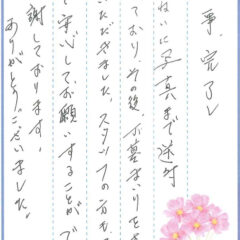 事、完了し
ねいに写真まで送付
ており、その後、お墓まいりをさ
いただきました。スタッフの方も、
て安心してお願いすることがで
謝しております。
ありがとうございました。